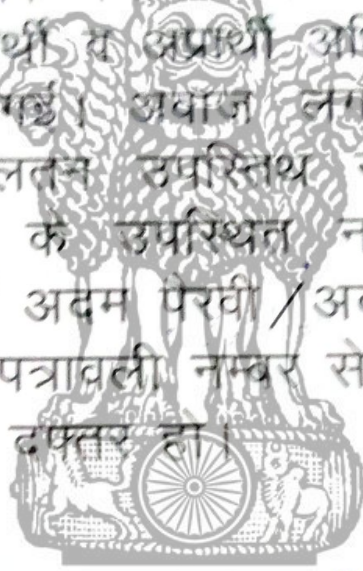 र्थी व अप्रार्थी अधि
गई। अवाज लग
लतन उपस्तिथ
के उपस्थित न
अदम पैरवी / अ
पत्रावली नम्बर से
दफ्तर हो।